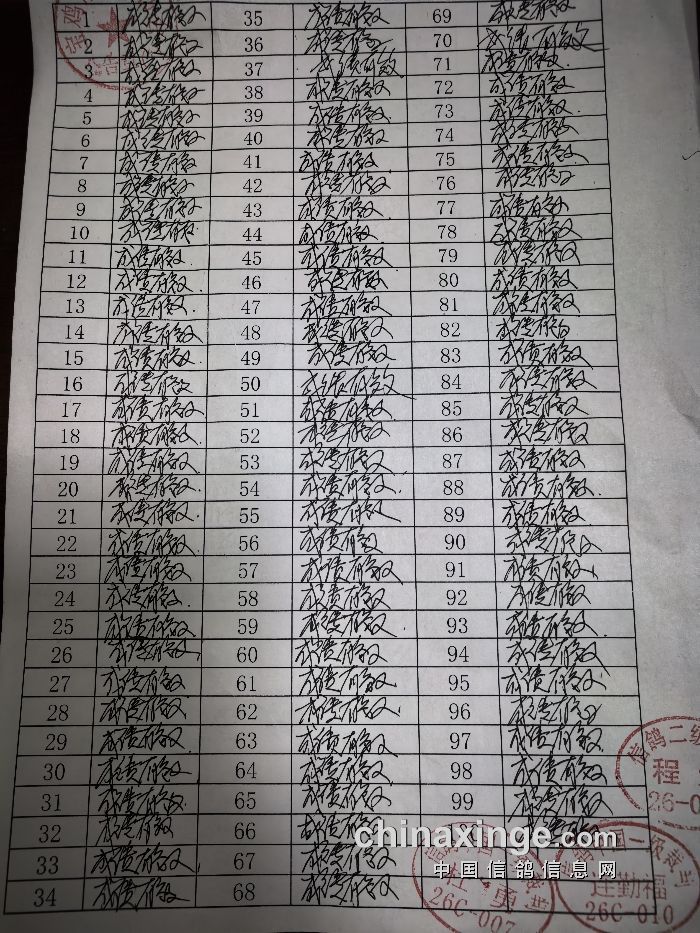 1 成绩有效 35 成绩有效 69 成绩有效
2 成绩有效 36 成绩有效 70 成绩有效
3 成绩有效 37 成绩有效 71 成绩有效
4 成绩有效 38 成绩有效 72 成绩有效
5 成绩有效 39 成绩有效 73 成绩有效
6 成绩有效 40 成绩有效 74 成绩有效
7 成绩有效 41 成绩有效 75 成绩有效
8 成绩有效 42 成绩有效 76 成绩有效
9 成绩有效 43 成绩有效 77 成绩有效
10 成绩有效 44 成绩有效 78 成绩有效
11 成绩有效 45 成绩有效 79 成绩有效
12 成绩有效 46 成绩有效 80 成绩有效
13 成绩有效 47 成绩有效 81 成绩有效
14 成绩有效 48 成绩有效 82 成绩有效
15 成绩有效 49 成绩有效 83 成绩有效
16 成绩有效 50 成绩有效 84 成绩有效
17 成绩有效 51 成绩有效 85 成绩有效
18 成绩有效 52 成绩有效 86 成绩有效
19 成绩有效 53 成绩有效 87 成绩有效
20 成绩有效 54 成绩有效 88 成绩有效
21 成绩有效 55 成绩有效 89 成绩有效
22 成绩有效 56 成绩有效 90 成绩有效
23 成绩有效 57 成绩有效 91 成绩有效
24 成绩有效 58 成绩有效 92 成绩有效
25 成绩有效 59 成绩有效 93 成绩有效
26 成绩有效 60 成绩有效 94 成绩有效
27 成绩有效 61 成绩有效 95 成绩有效
28 成绩有效 62 成绩有效 96 成绩有效
29 成绩有效 63 成绩有效 97 成绩有效
30 成绩有效 64 成绩有效 98 成绩有效
31 成绩有效 65 成绩有效 99 成绩有效
32 成绩有效 66 成绩有效 成绩有效
33 成绩有效 67 成绩有效
34 成绩有效 68 成绩有效
信鸽二级
程
26-0
chinaxinge.com
中国信鸽信息网
国一级裁判
连勤福
26C-010
杜勇
26C-007